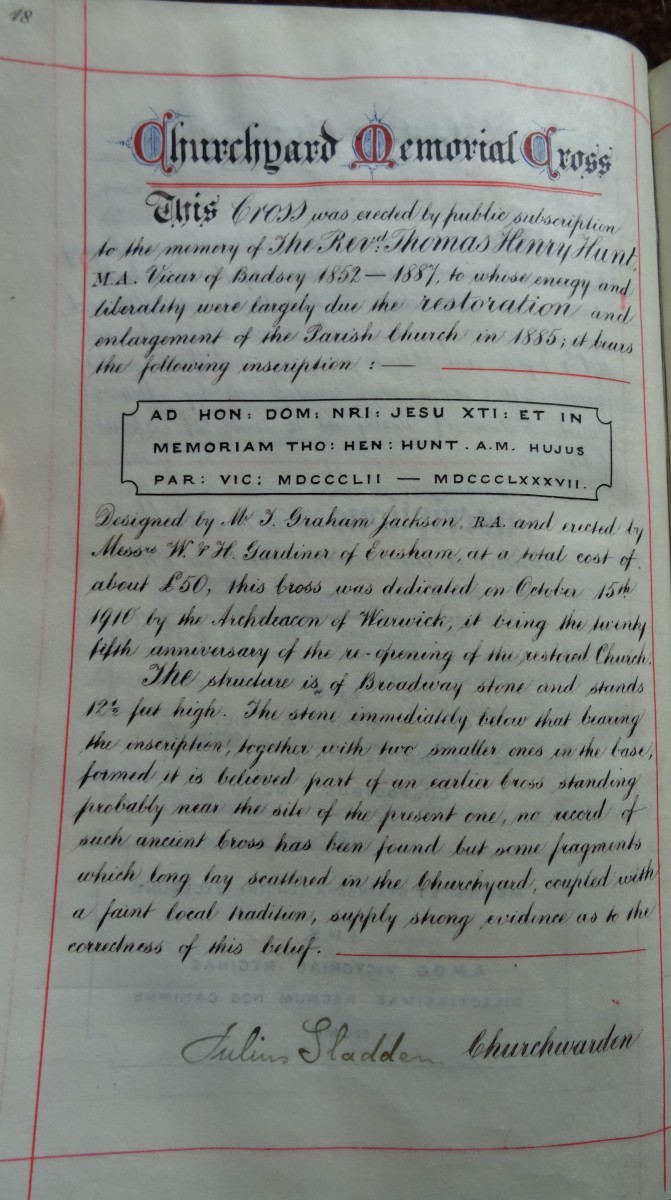 18
Churchyard Memorial Cross
This Cross was erected by public subscription
to the memory of The Revd. Thomas Henry Hunt,
M.A. Vicar of Badsey 1852 — 1887, to whose energy and
liberality were largely due the restoration and
enlargement of the Parish Church in 1885; it bears
the following inscription : —
AD HON: DOM: NRI: JESU XTI: ET IN
MEMORIAM THO: HEN: HUNT. A.M. HUJUS
PAR: VIC: MDCCCLII — MDCCCLXXXVII.
Designed by Mr T. Graham Jackson, R.A. and erected by
Messrs W. & H. Gardiner of Evesham, at a total cost of
about £50, this Cross was dedicated on October 15th
1910 by the Archdeacon of Warwick, it being the twenty
fifth anniversary of the re-opening of the restored Church.
The structure is of Broadway stone and stands
12½ feet high. The stone immediately below that bearing
the inscription, together with two smaller ones in the base,
formed it is believed part of an earlier Cross standing
probably near the site of the present one, no record of
such ancient Cross has been found but some fragments
which long lay scattered in the Churchyard, coupled with
a faint local tradition, supply strong evidence as to the
correctness of this belief.
Julius Sladden Churchwarden